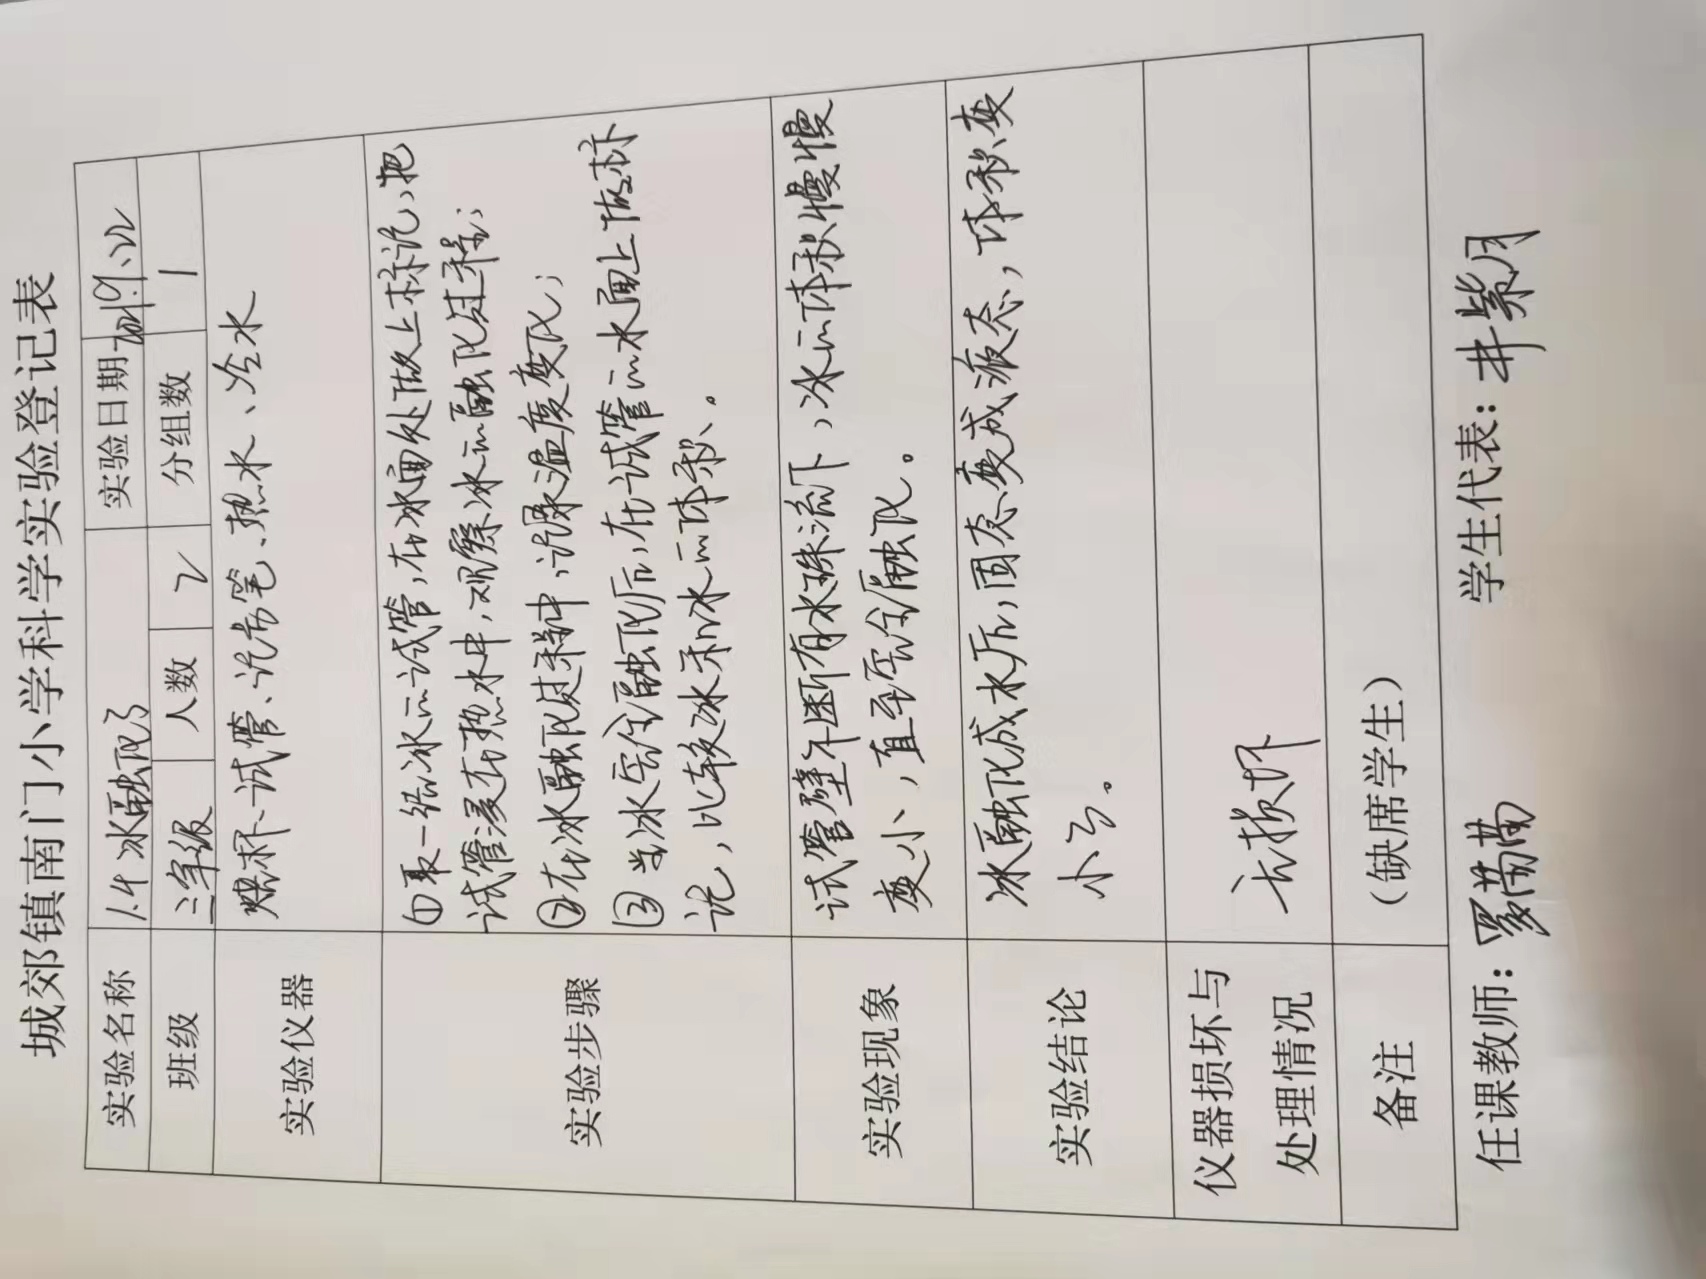 城郊镇南门小学科学实验登记表
实验名称 1.4 冰融化了 实验日期 2021.9.22
班级 三年级 人数 2 分组数 1
实验仪器 烧杯、试管、记号笔、热水、冷水
实验步骤
①取一组冰的试管,在冰面处做上标记,把
试管浸在热水中,观察冰的融化过程;
②在冰融化过程中,记录温度变化;
③当冰完全融化后,在试管的水面上做标
记,比较冰和水的体积。
实验现象
试管壁不断有水珠流下,冰的体积慢慢
变小,直至完全融化。
实验结论
冰融化成水后,固态变成液态,体积变
小了。
仪器损坏与
处理情况
无损坏
备注 (缺席学生)
任课教师: 学生代表:井紫月